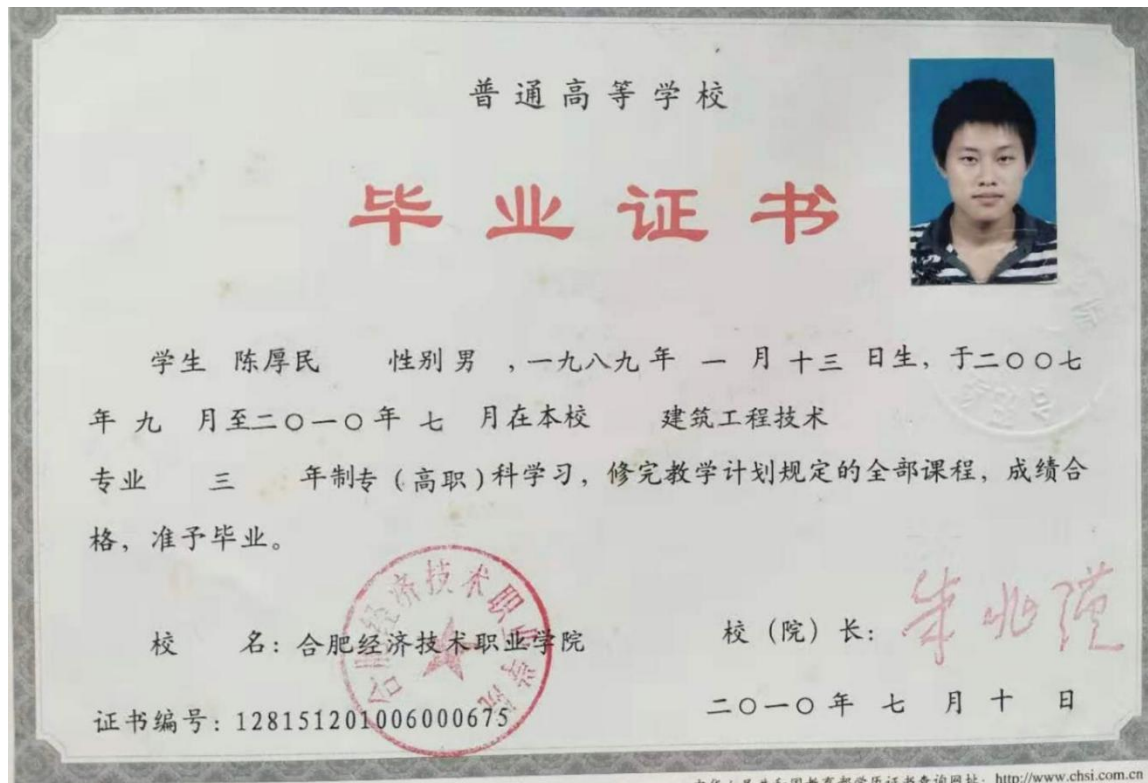 普通高等学校
毕业证书
学生 陈厚民 性别 男 ,一九八九 年 一 月 十三 日生, 于二〇〇七
年 九 月至二〇一〇年 七 月在本校 建筑工程技术
专业 三 年制专(高职)科学习, 修完教学计划规定的全部课程, 成绩合
格, 准予毕业。
合肥经济技术职业学院
校 名: 合肥经济技术职业学院
校(院)长:
证书编号: 128151201006000675
二〇一〇 年 七 月 十 日
中华人民共和国教育部学历证书查询网址: http://www.chsi.com.cn